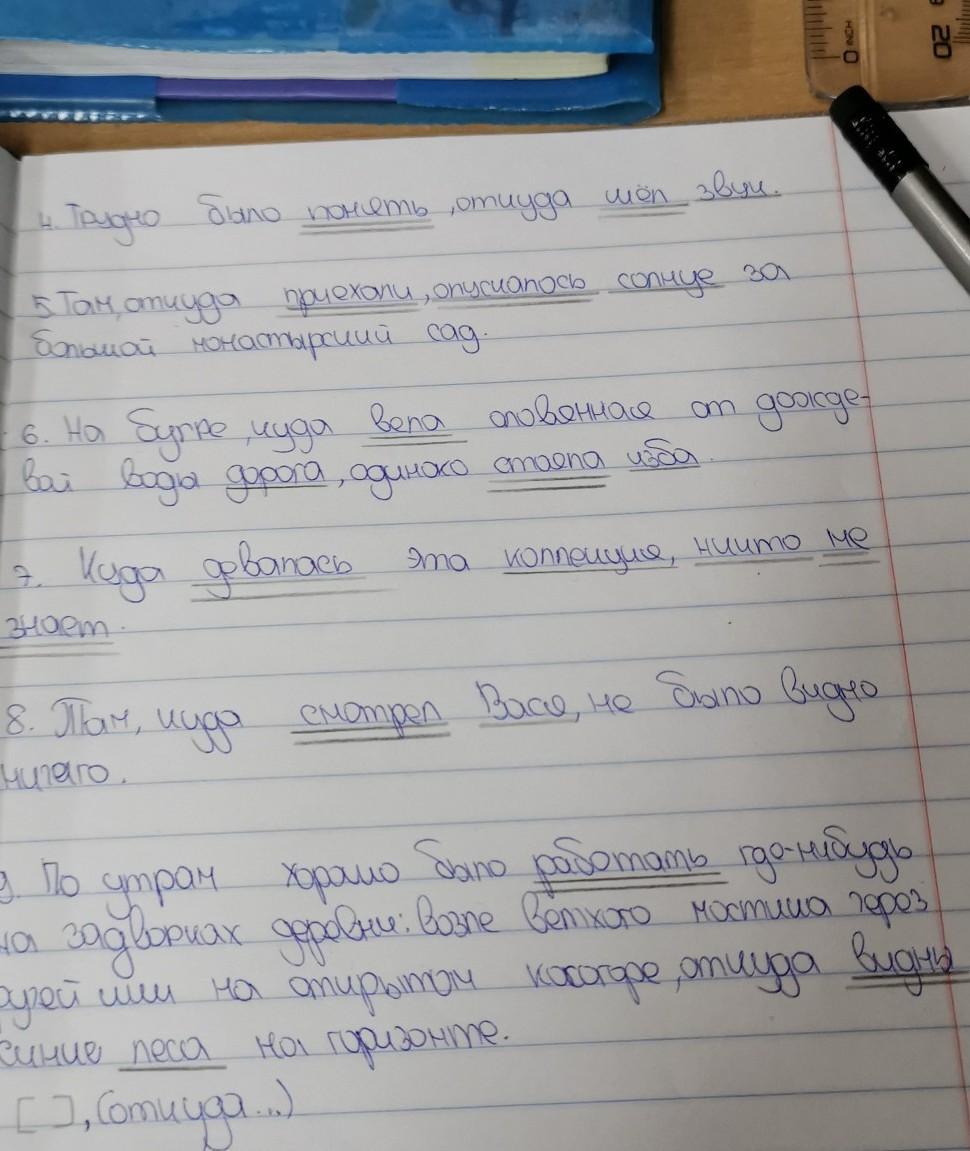 INCH
0
20
4. Трудно было понять, откуда шёл звук.
5. Там, откуда приехали, опускалось солнце за
большой монастырский сад.
6. На бугре, куда вела оловенная от дожде-
вай воды дорога, одиноко стояла изба.
7. Куда девалась эта коллекция, никто не
знает.
8. Там, куда смотрел Вася, не было видно
ничего.
9. По утрам хорошо было работать где-нибудь
на задворках деревни: возле ветхого мостика через
ручей или на открытом косогоре, откуда видны
синие леса на горизонте.
[ ], (откуда...)